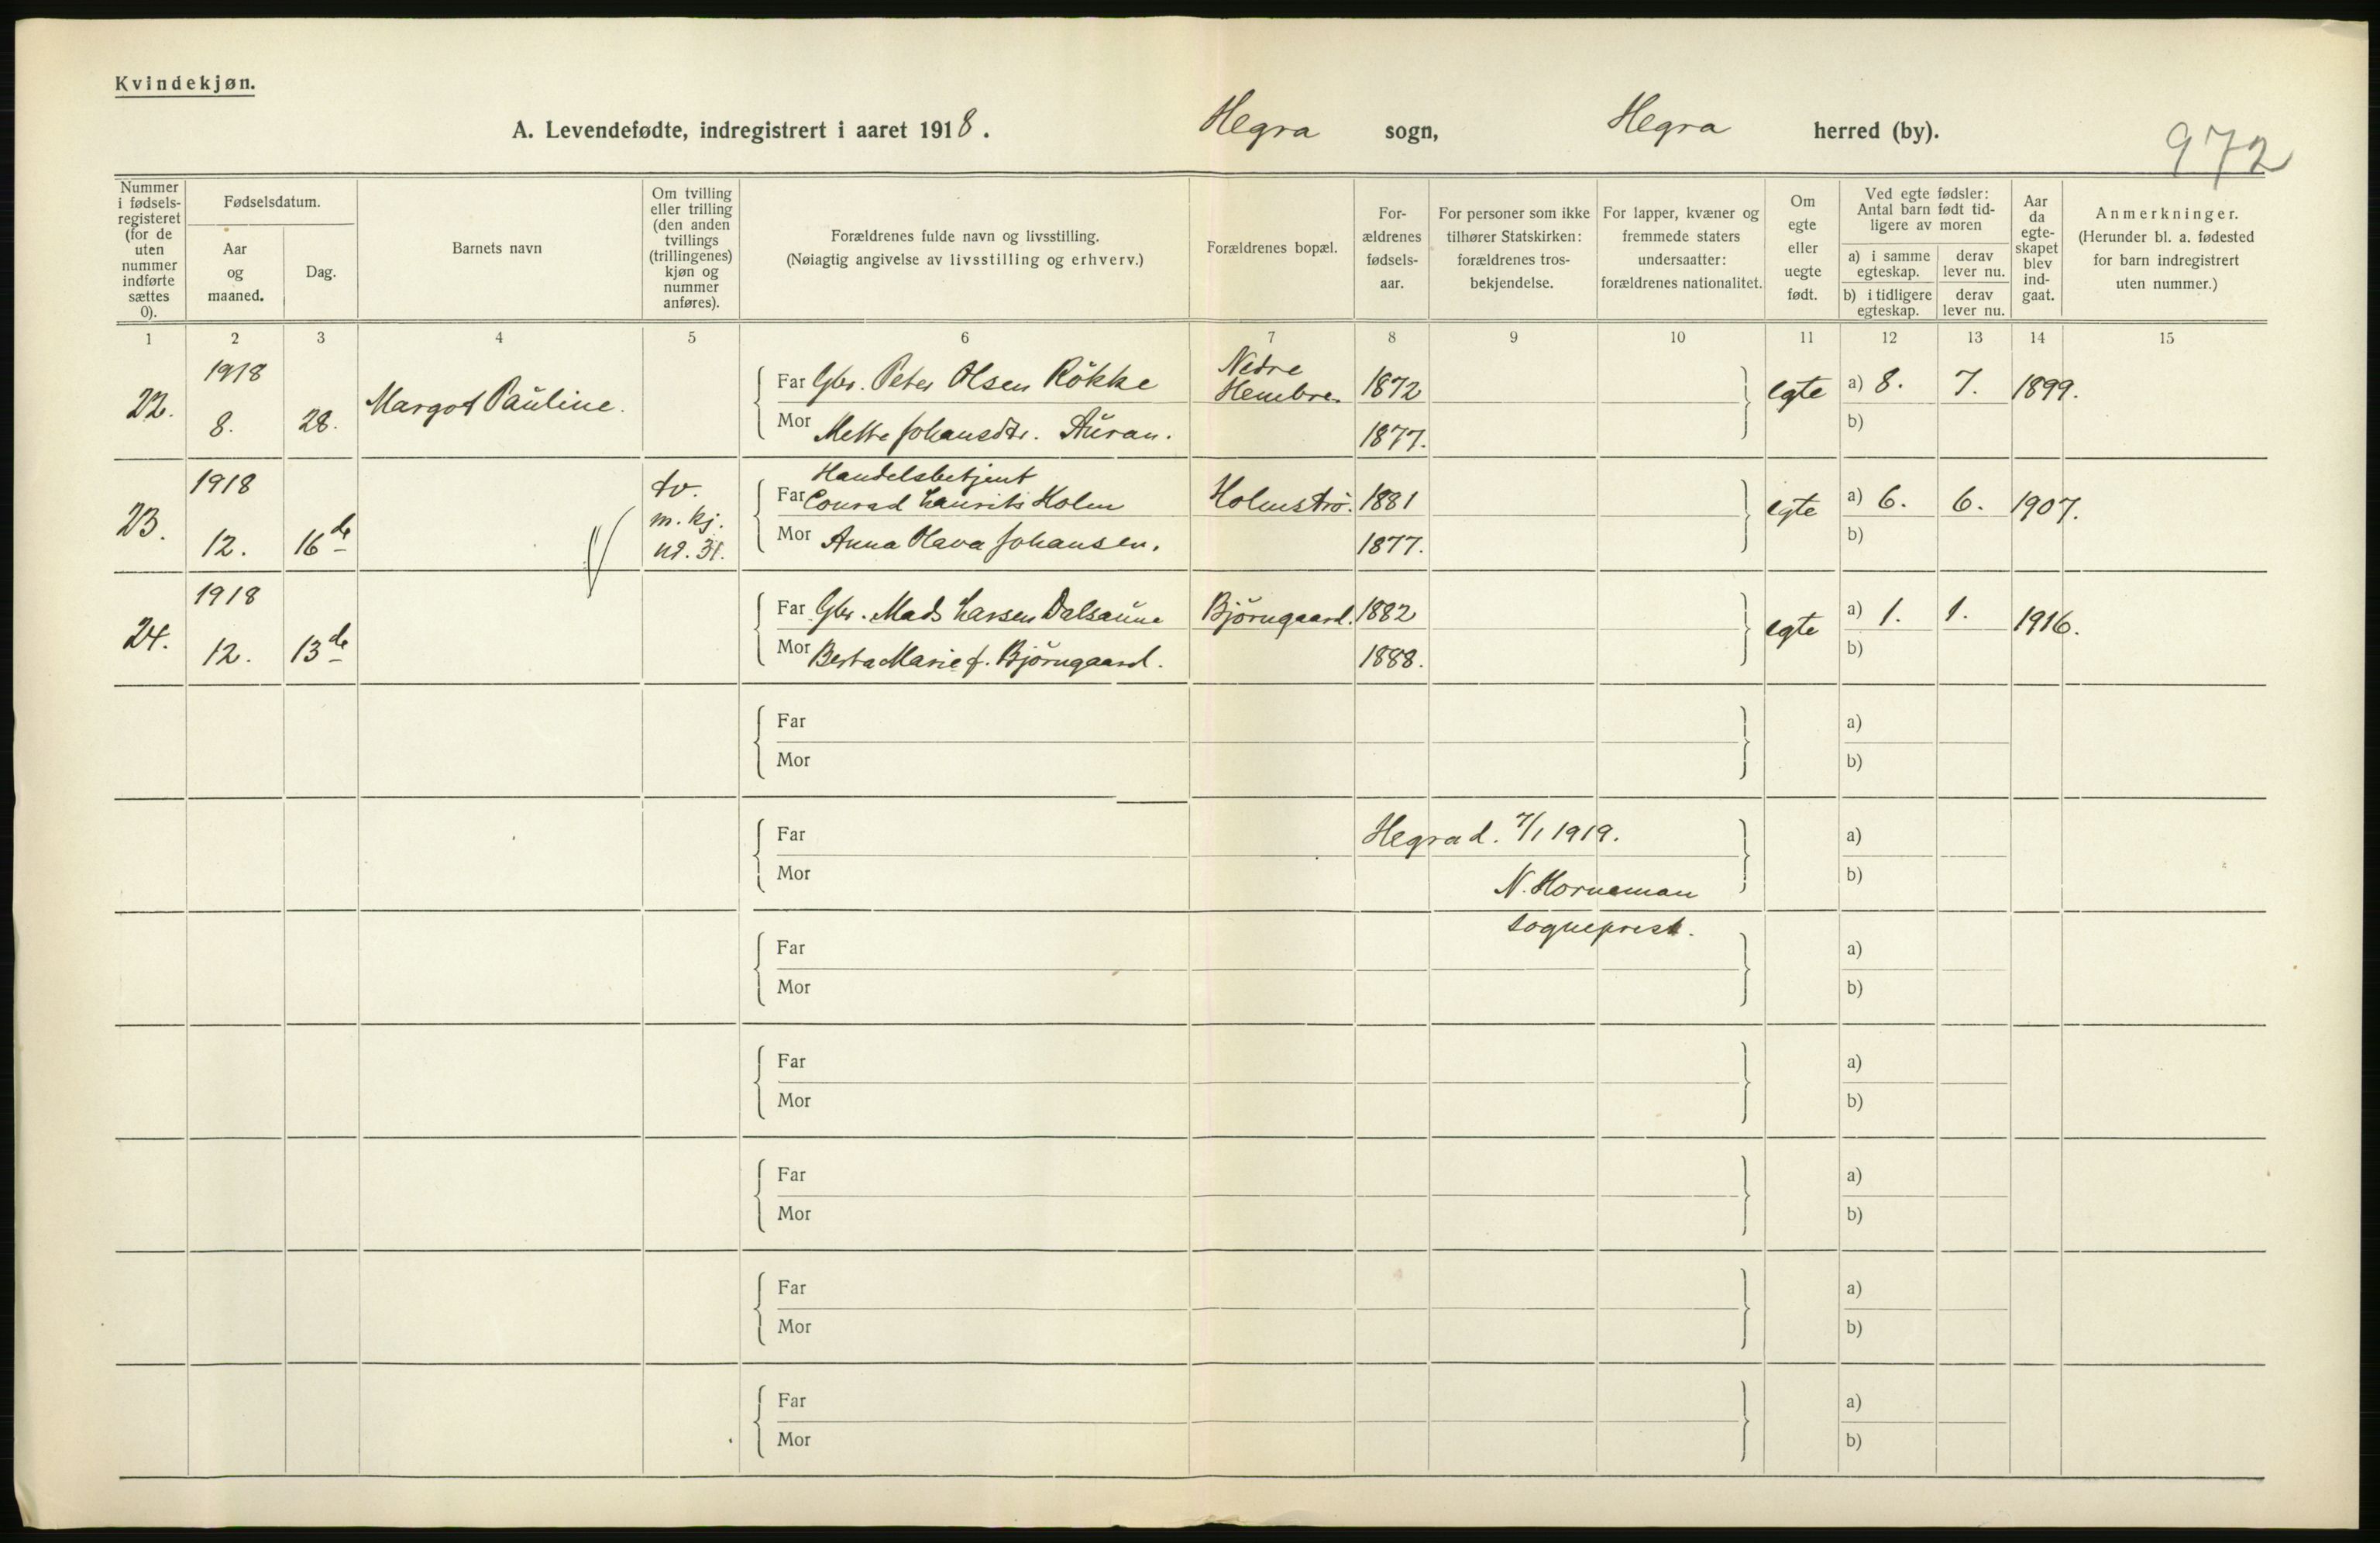 Kvindekjøn.
A. Levendefødte, indregistrert i aaret 1918. Hegra sogn, Hegra herred (by).
972
Nummer i fødsels-registeret (for de uten nummer indførte sættes 0).
Fødselsdatum.
Aar og maaned.
Dag.
Barnets navn
Om tvilling eller trilling (den anden tvillings (trillingenes) kjøn og nummer anføres).
Forældrenes fulde navn og livsstilling.
(Nøiagtig angivelse av livsstilling og erhverv.)
Forældrenes bopæl.
For-ældrenes fødsels-aar.
For personer som ikke tilhører Statskirken: forældrenes tros-bekjendelse.
For lapper, kvæner og fremmede staters undersaatter: forældrenes nationalitet.
Om egte eller uegte født.
Ved egte fødsler: Antal barn født tid-ligere av moren
a) i samme egteskap.
derav lever nu.
b) i tidligere egteskap.
derav lever nu.
Aar da egte-skapet blev ind-gaat.
Anmerkninger.
(Herunder bl. a. fødested for barn indregistrert uten nummer.)
1 2 3 4 5 6 7 8 9 10 11 12 13 14 15
22. 1918 8. 28. Margot Pauline.
Far Gbr. Peter Olsen Røkke Nedre Hembre. 1872 egte a) 8. 7. 1899.
Mor Mette Johansdtr. Auran. 1877. b)
23. 1918 12. 16de tv. m. kj. no. 31.
Handelsbetjent
Far Conrad Laurits Holm Holmstrø. 1881 egte a) 6. 6. 1907.
Mor Anna Olava Johansen. 1877. b)
24. 1918 12. 13de
Far Gbr. Mads Larsen Dalsaune Bjørngaard. 1882 egte a) 1. 1. 1916.
Mor Berta Marie f. Bjørngaard. 1888. b)
Far a)
Mor b)
Far Hegra d. 7/1 1919. a)
Mor N. Horneman b)
sogneprest.
Far a)
Mor b)
Far a)
Mor b)
Far a)
Mor b)
Far a)
Mor b)
Far a)
Mor b)